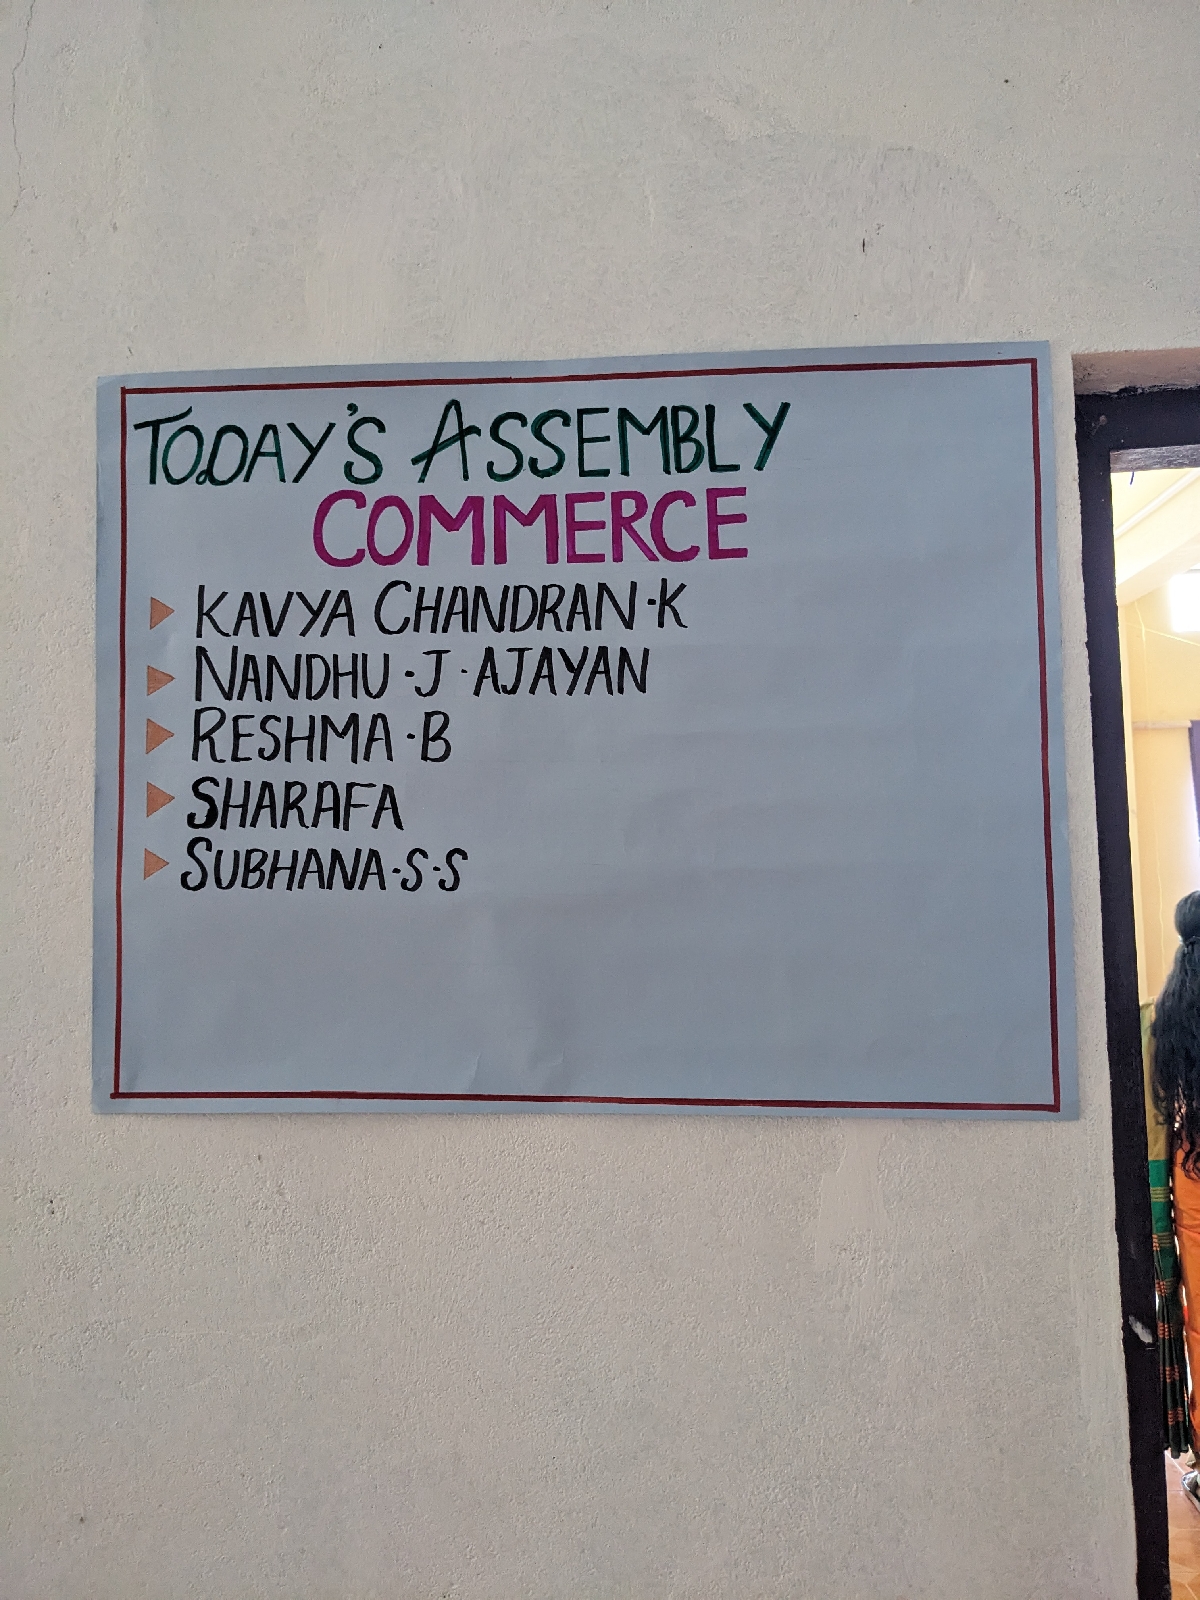 TODAY'S ASSEMBLY
COMMERCE
KAVYA CHANDRAN·K
NANDHU·J·AJAYAN
RESHMA·B
SHARAFA
SUBHANA·S·S